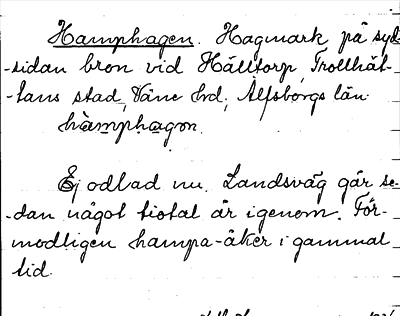 Hamphagen. Hagmark på syd-
-sidan bron vid Hälltorp, Trollhät-
-tans stad, Väne hrd, Älfsborgs län.
hàmphagon.
Ej odlad nu. Landsväg går se-
-dan något tiotal år igenom. För-
modligen hampa-åker i gammal
tid.